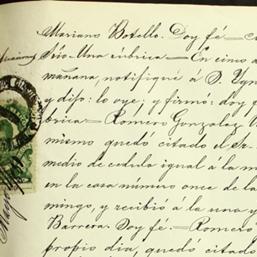 Mariano Botello. Doy fé = 
Srio. Una rúbrica = En cinco d
mañana, notifiqué á D. Ygn
y dijo: lo oye; y firmó; doy f
brica = Romero Gonzalez. U
mismo quedó citado el Sr.
medio de cedula igual á la m
en la casa número once de la
mingo, y recibió á la una y
Barrera. Doy fé. = Romero
propio dia, quedó citado